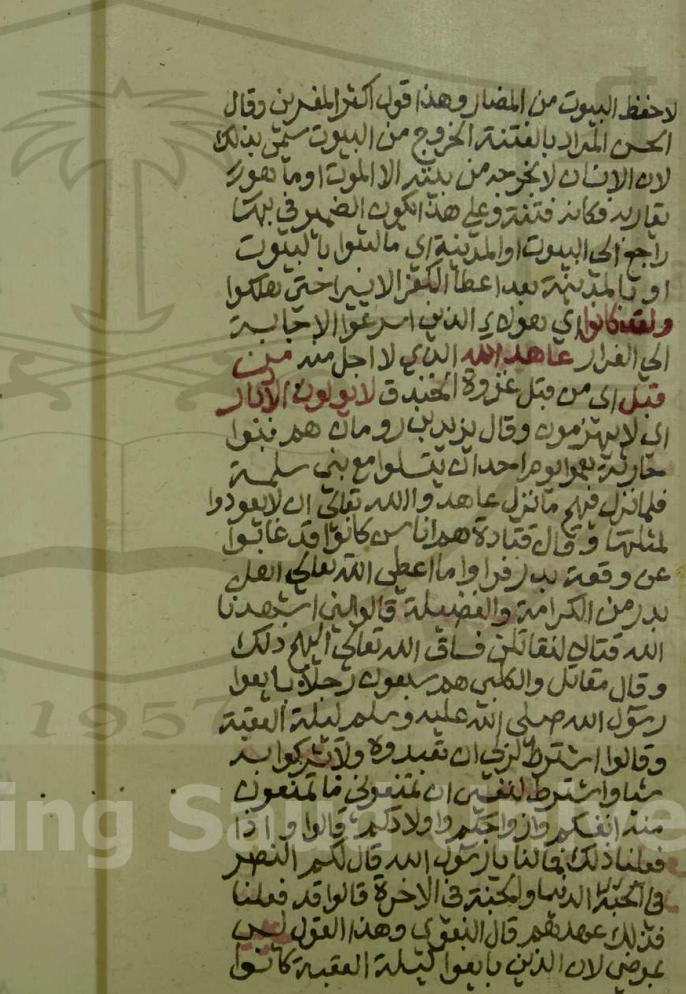 لاحفظ البيوت من المضار وهذا قول اكثر المفسرين وقال
الحسن المراد بالفتنة الخروج من البيوت سمى بذلك
لان الانسان لا يخرجه من بيته الا الموت او ما هو
يقاربه فكانه فتنة وعلى هذا يكون الضمير في بها
راجع الى البيوت او المدينة اي ما لبثوا بالبيوت
او بالمدينة بعد اعطاء الكفر الا يسيرا حتى هلكوا
ولقد كانوا اي هولاء الذين اسرعوا الاجابة
الى الفرار عاهدوا الله الذي لا اجل منه من
قبل اي من قبل غزوة الخندق لا يولون الادبار
اي لا ينهزمون وقال يزيد بن رومان هم بنوا
حارثة هموا يوم احد ان يفشلوا مع بني سلمة
فلما نزل فيهم ما نزل عاهدوا الله تعالى ان لا يعودوا
لمثلها وقال قتادة هم اناس كانوا قد غابوا
عن وقعة بدر فراوا ما اعطى الله تعالى اهل
بدر من الكرامة والفضيلة قالوا لئن اشهدنا
الله قتالا لنقاتلن فساق الله تعالى اليهم ذلك
وقال مقاتل والكلبي هم سبعون رجلا بايعوا
رسول الله صلى الله عليه وسلم ليلة العقبة
وقالوا اشترط لربي ان تعبدوه ولا تشركوا به
شيا واشترط لنفسي ان تمنعوني ما تمنعون
منه انفسكم وازواجكم واولادكم قالوا واذا
فعلنا ذلك فما لنا يا رسول الله قال لكم النصر
في الدنيا والجنة في الاخرة قالوا قد فعلنا
فذلك عهدهم قال البغوي وهذا القول ليس
بمرضي لان الذين بايعوا ليلة العقبة كانوا
1957